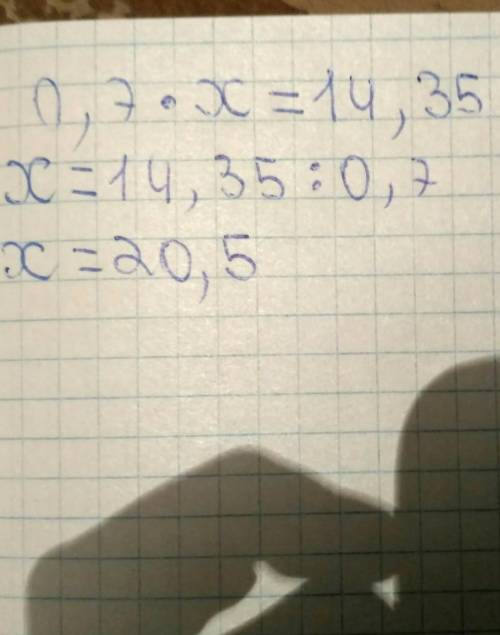 0,7·x=14,35
x=14,35:0,7
x=20,5